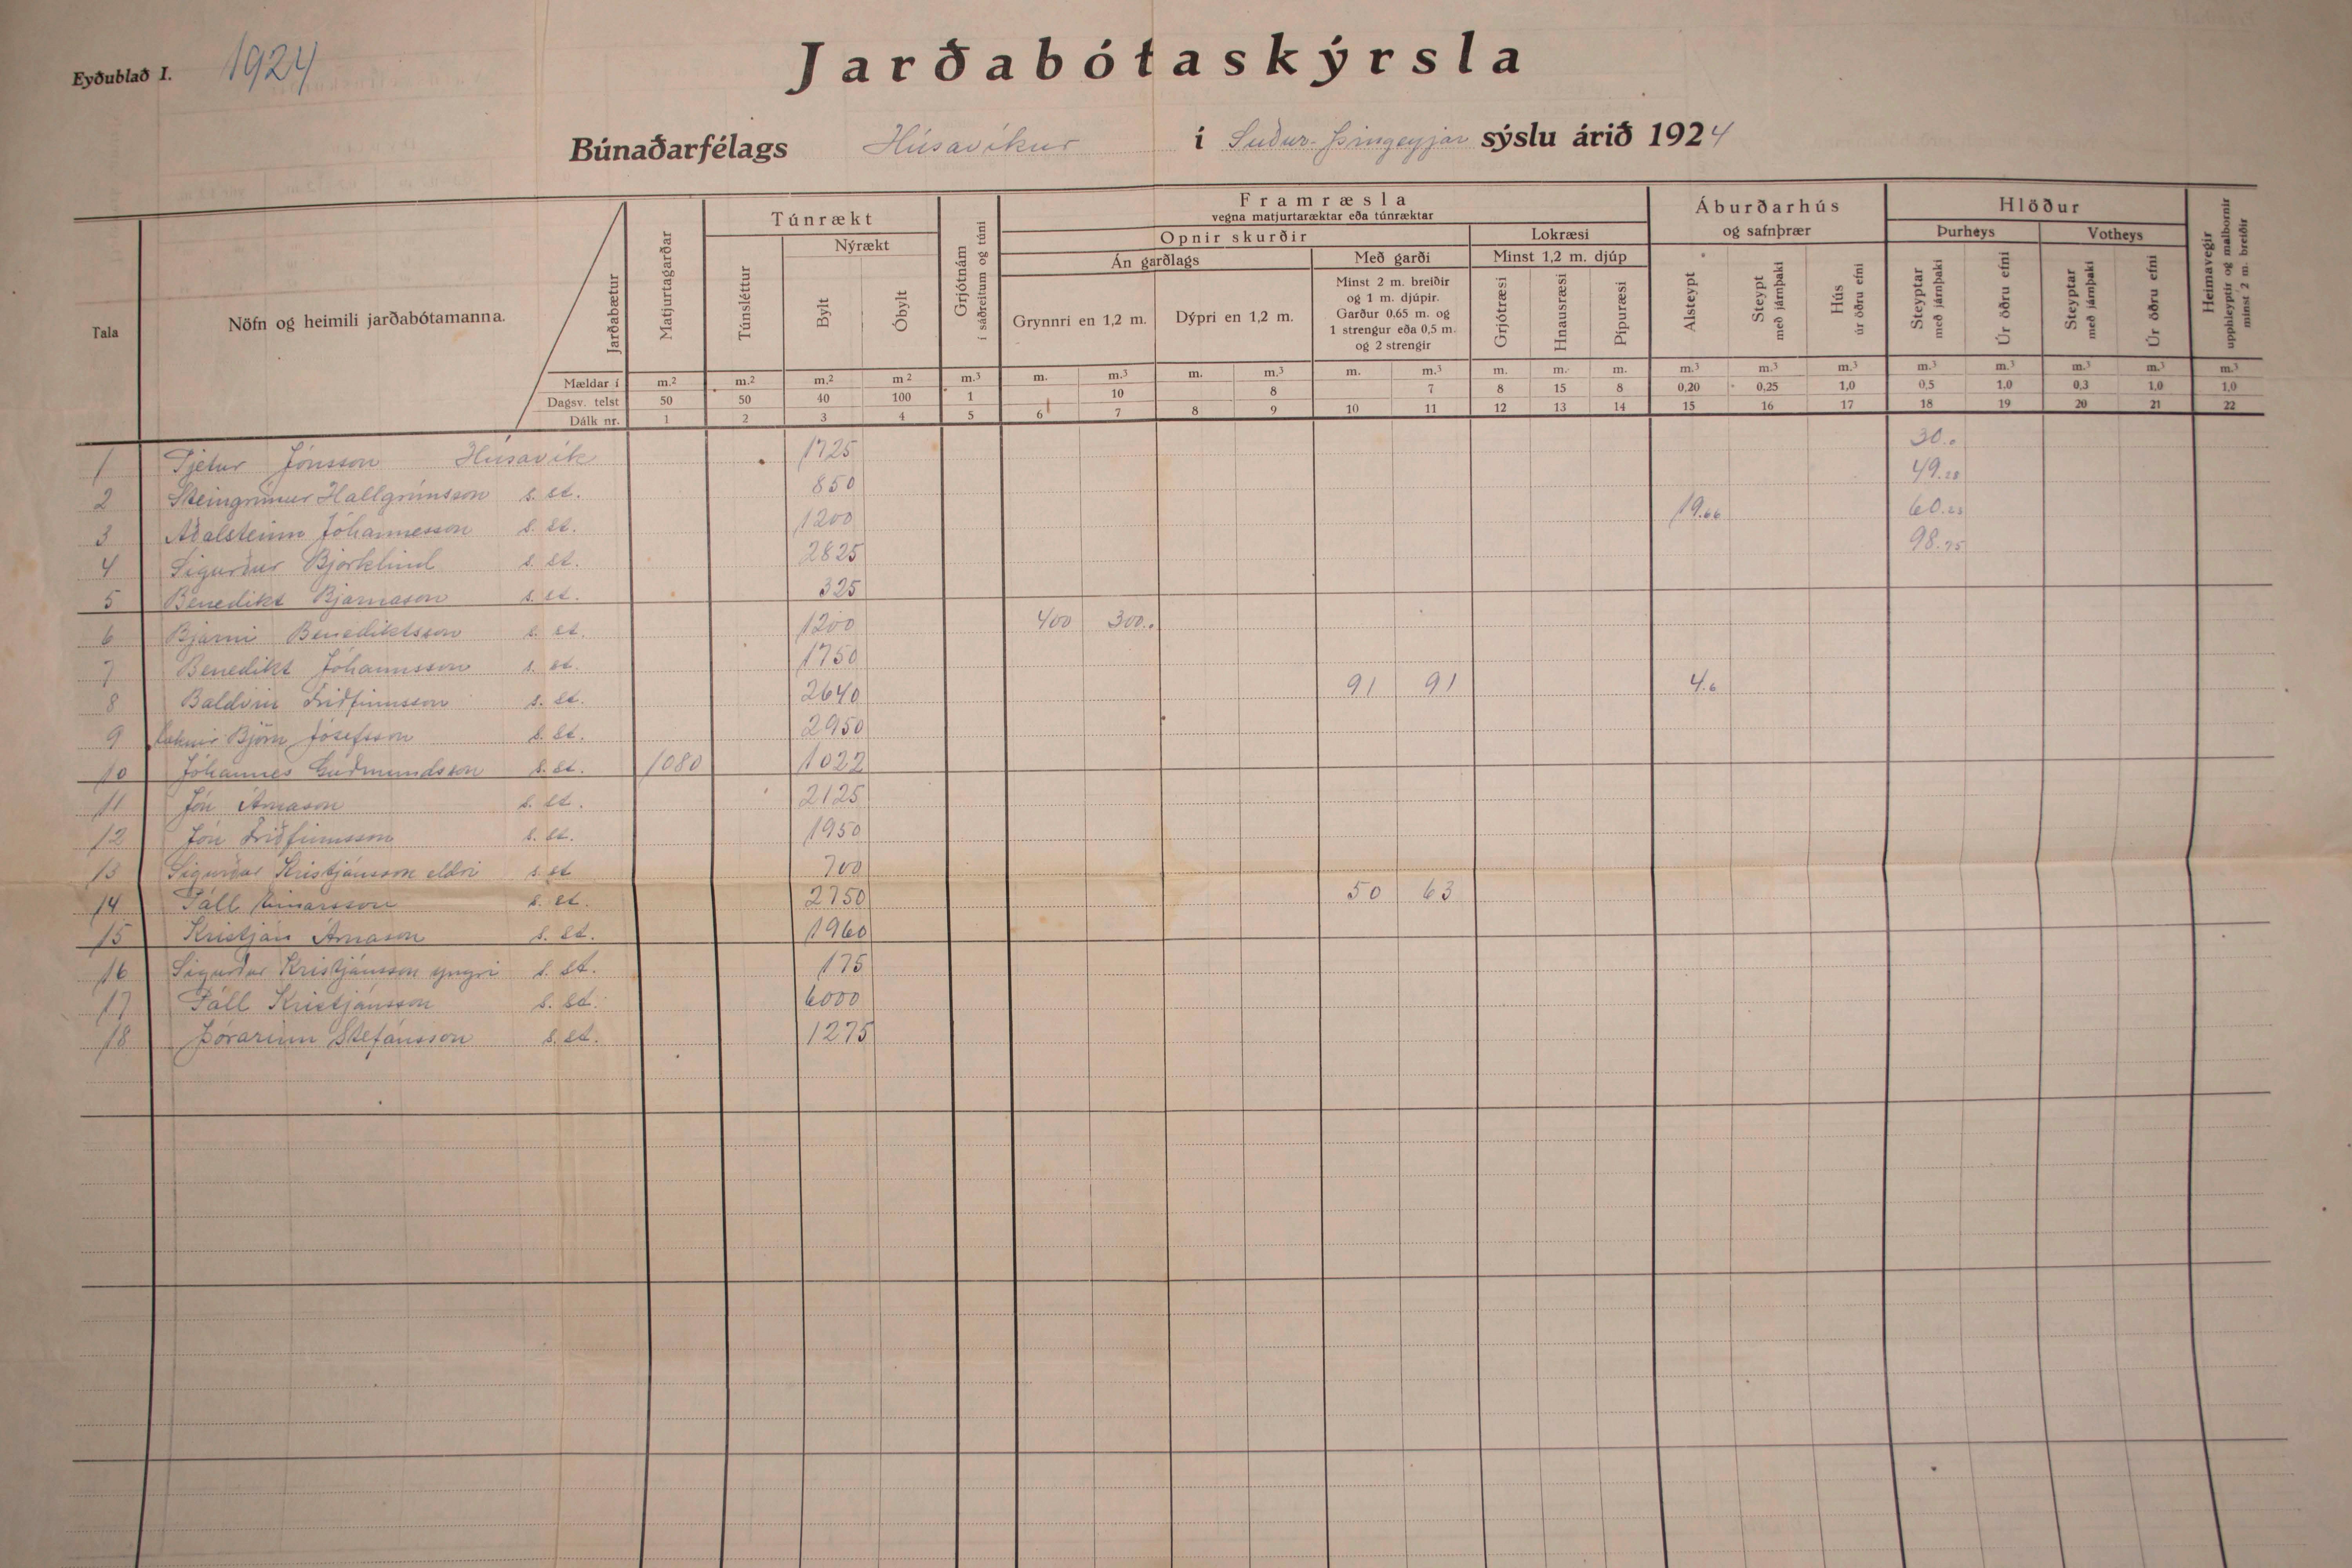 Eyðublað I. 1924
Jarðabótaskýrsla
Búnaðarfélags Húsavíkur í Suður-Þingeyjar sýslu árið 1924
Tala
Nöfn og heimili jarðabótamanna.
Jarðabætur
Mældar í
Dagsv. telst
Dálk nr.
Matjurtagarðar
m.² 50 1
Túnrækt
Túnsléttur
m.² 50 2
Nýrækt
Bylt
m.² 40 3
Óbylt
m² 100 4
Grjótnám
í sáðreitum og túni
m.³ 1 5
Framræsla
vegna matjurtaræktar eða túnræktar
Opnir skurðir
Án garðlags
Grynnri en 1,2 m.
m. m.³
10
6 7
Dýpri en 1,2 m.
m. m.³
8
8 9
Með garði
Minst 2 m. breiðir
og 1 m. djúpir.
Garður 0.65 m. og
1 strengur eða 0,5 m.
og 2 strengir
m. m.³
7
10 11
Lokræsi
Minst 1,2 m. djúp
Grjótræsi
m. 8 12
Hnausræsi
m. 15 13
Pípuræsi
m. 8 14
Áburðarhús
og safnþrær
Alsteypt
m.³ 0,20 15
Steypt
með járnþaki
m.³ 0,25 16
Hús
úr öðru efni
m.³ 1,0 17
Hlöður
Þurheys
Steyptar
með járnþaki
m.³ 0,5 18
Úr öðru efni
m.³ 1,0 19
Votheys
Steyptar
með járnþaki
m.³ 0,3 20
Úr öðru efni
m.³ 1,0 21
Heimavegir
upphleyptir og malbornir
minst 2 m. breiðir
m.³ 1,0 22
1 Pjetur Jónsson Húsavík 1725 30.0
2 Steingrímur Hallgrímsson s. st. 850 49.28
3 Aðalsteinn Jóhannesson s. st. 1200 19.66 60.25
4 Sigurður Bjorklind s. st. 2825 98.75
5 Benedikt Bjarnason s. st. 325
6 Bjarni Benediktsson s. st. 1200 400 300.0
7 Benedikt Jóhannsson s. st. 1750
8 Baldvin Friðfinnsson s. st. 2640 91 91 4.6
9 Læknir Björn Jósefsson s. st. 2950
10 Jóhannes Guðmundsson s. st. 1080 1022
11 Jón Árnason s. st. 2125
12 Jón Friðfinnsson s. st. 1950
13 Sigurður Kristjánsson eldri s. st 700
14 Páll Einarsson s. st. 2750 50 63
15 Kristján Árnason s. st. 1960
16 Sigurður Kristjánsson yngri s. st. 175
17 Páll Kristjánsson s. st. 6000
18 Þórarinn Stefánsson s. st. 1275